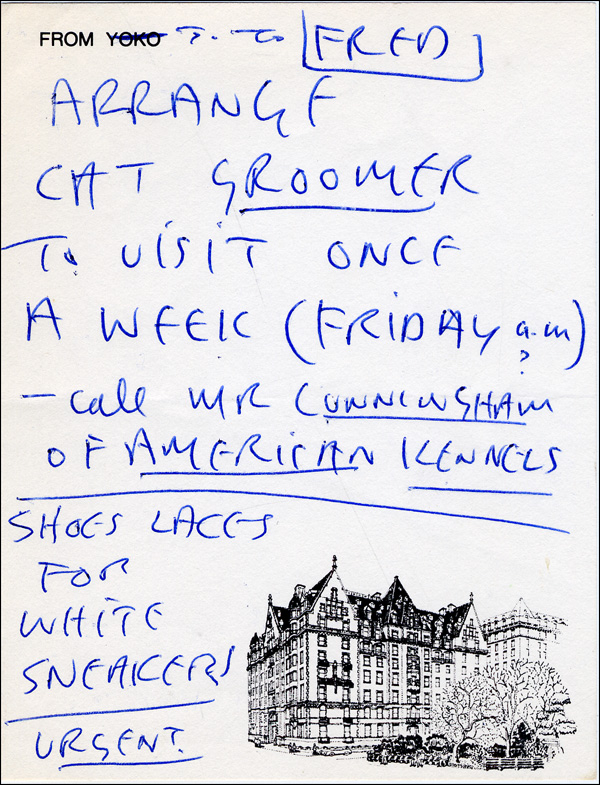 FROM YOKO J. TO FRED
ARRANGE
CAT GROOMER
TO VISIT ONCE
A WEEK (FRIDAY a.m)
?
– call MR CUNNINGHAM
OF AMERICAN KENNELS
SHOES LACES
FOR
WHITE
SNEAKERS
URGENT.